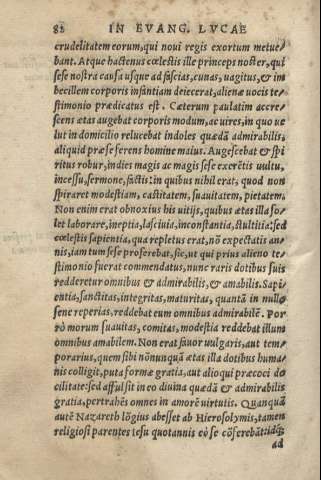 82 IN EVANG. LVCAE
crudelitatem eorum, qui novi regis exortum metue/
bant. Atque hactenus cœlestis ille princeps noster, qui
sese nostra causa usque ad fascias, cunas, vagitus, & im
becillem corporis infantiam deiecerat, alienæ vocis te/
stimonio prædicatus est. Cæterum paulatim accre/
scens ætas augebat corporis modum, ac vires, in quo ve
lut in domicilio relucebat indoles quædã admirabilis,
aliquid præ se ferens homine maius. Augescebat & spi
ritus robur, indies magis ac magis sese exerẽtis vultu,
incessu, sermone, factis: in quibus nihil erat, quod non
spiraret modestiam, castitatem, suavitatem, pietatem.
Non enim erat obnoxius his vitijs, quibus ætas illa so/
let laborare, ineptia, lascivia, inconstantia, stultitia: sed
cœlestis sapientia, qua repletus erat, nõ expectatis an/
nis, iam tum sese proferebat, sic, ut qui prius alieno te/
stimonio fuerat commendatus, nunc raris dotibus suis
redderetur omnibus & admirabilis, & amabilis. Sapi/
entia, sanctitas, integritas, maturitas, quantã in nullo
sene reperias, reddebat eum omnibus admirabilẽ. Por/
rò morum suavitas, comitas, modestia reddebat illum
omnibus amabilem. Non erat favor vulgaris, aut tem/
porarius, quem sibi nonnunquã ætas illa dotibus huma/
nis colligit, puta formæ gratia, aut alioqui præcoci do
cilitate: sed affulsit in eo divina quædã & admirabilis
gratia, pertrahẽs omnes in amorẽ virtutis. Quanquã
autẽ Nazareth lõgius abesset ab Hierosolymis, tamen
religiosi parentes Iesu quotannis eò se cõferebãt idq;
ad